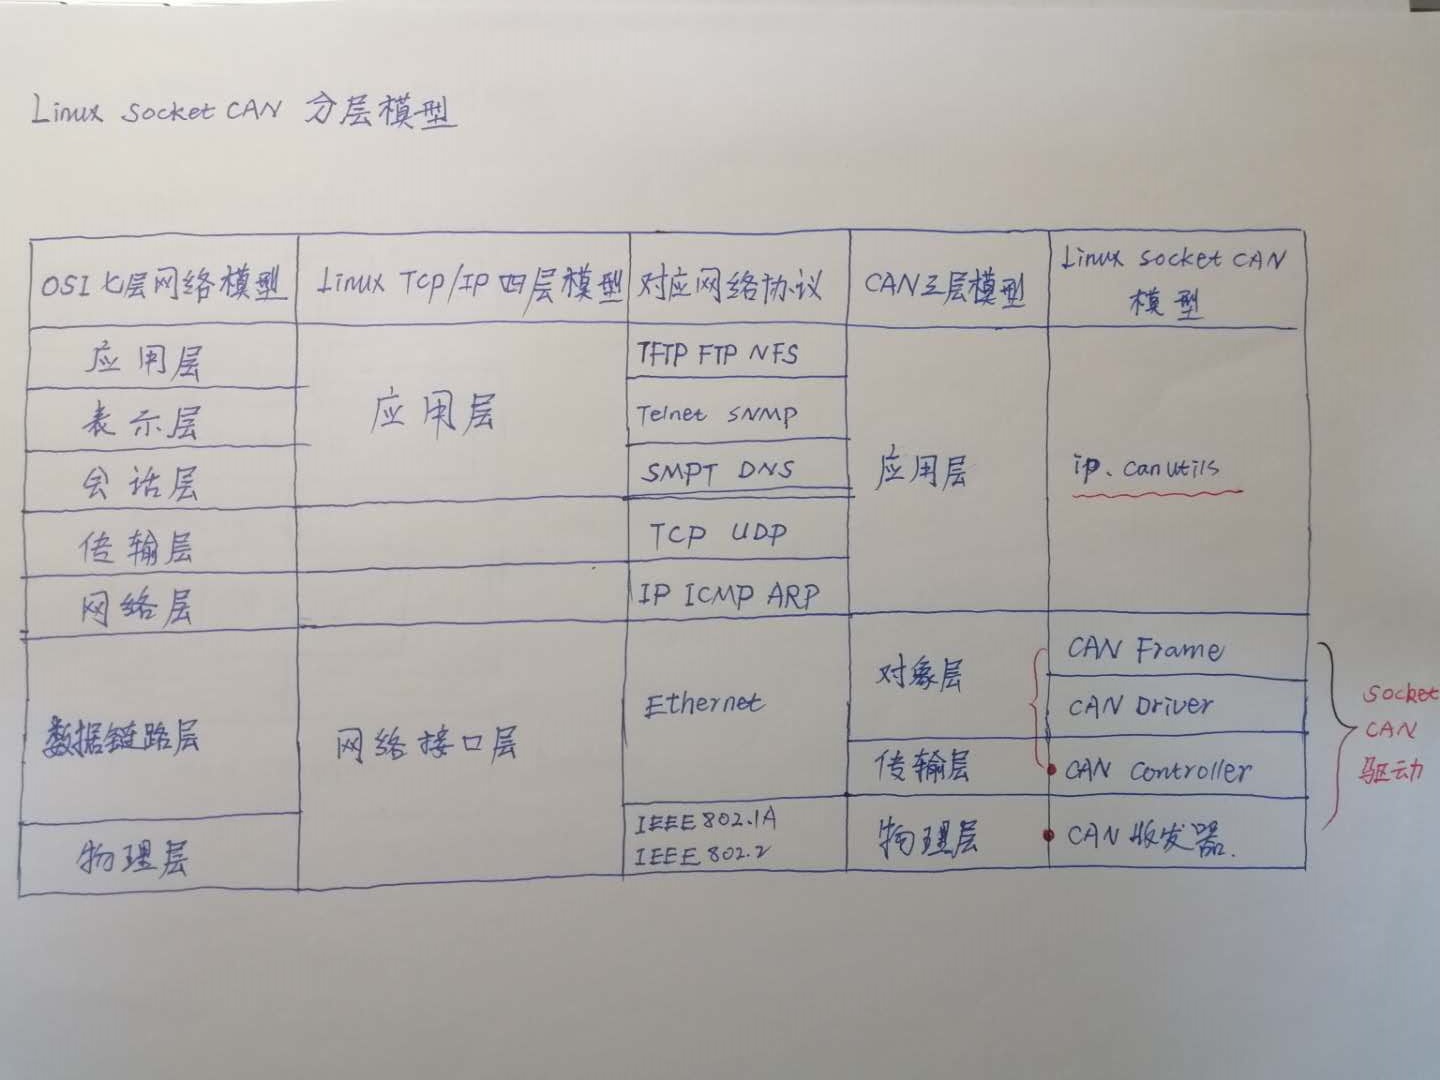 Linux Socket CAN 分层模型
OSI 七层网络模型
Linux TCP/IP 四层模型
对应网络协议
CAN三层模型
Linux Socket CAN
模型
应用层
表示层
会话层
传输层
网络层
数据链路层
物理层
应用层
网络接口层
TFTP FTP NFS
Telnet SNMP
SMPT DNS
TCP UDP
IP ICMP ARP
Ethernet
IEEE 802.1A
IEEE 802.2
应用层
对象层
传输层
物理层
ip、canutils
CAN Frame
CAN Driver
CAN Controller
CAN 收发器.
Socket
CAN
驱动